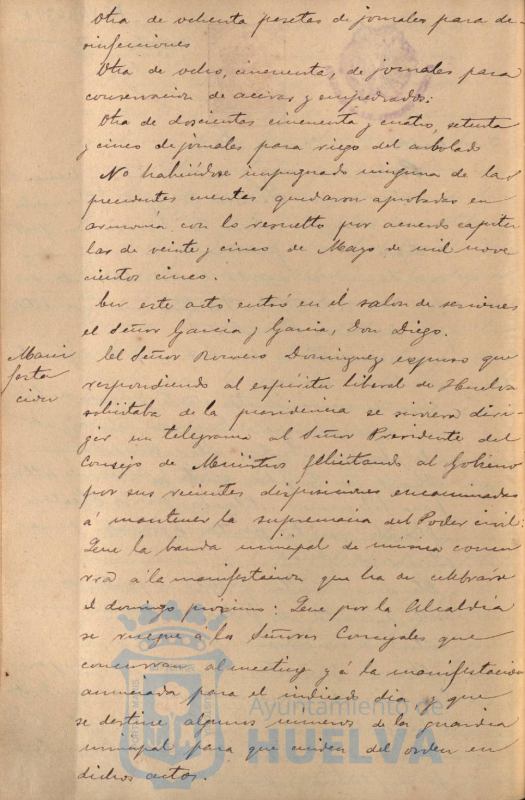 Otra de ochenta pesetas de jornales para de-
sinfecciones
Otra de ocho, cincuenta, de jornales para
conservacion de aceras y empedrados:
Otra de doscientas cincuenta y cuatro, setenta
y cinco de jornales para riego del arbolado
No habiéndose impugnado ninguna de las
precedentes cuentas, quedaron aprobadas en
armonía con lo resuelto por acuerdo capitu
lar de veinte y cinco de Mayo de mil nove
cientos cinco.
En este acto entró en el salon de sesiones
el Señor Garcia y Garcia, Don Diego.
Manifestacion
El Señor Romero Dominguez expuso que
respondiendo al espíritu liberal de Huelva
solicitaba de la presidencia se sirviera diri
gir un telegrama al Señor Presidente del
Consejo de Ministros felicitando al Gobierno
por sus recientes disposiciones encaminadas
á mantener la supremacia del Poder civil:
Que la banda municipal de música concu
rra á la manifestacion que ha de celebrarse
el domingo próximo: Que por la Alcaldía
se ruegue á los Señores Concejales que
concurran al meeting y á la manifestacion
anunciada para el indicado dia y que
se destine algunos numeros de la guardia
municipal para que cuiden del orden en
dichos actos.
Ayuntamiento de
HUELVA